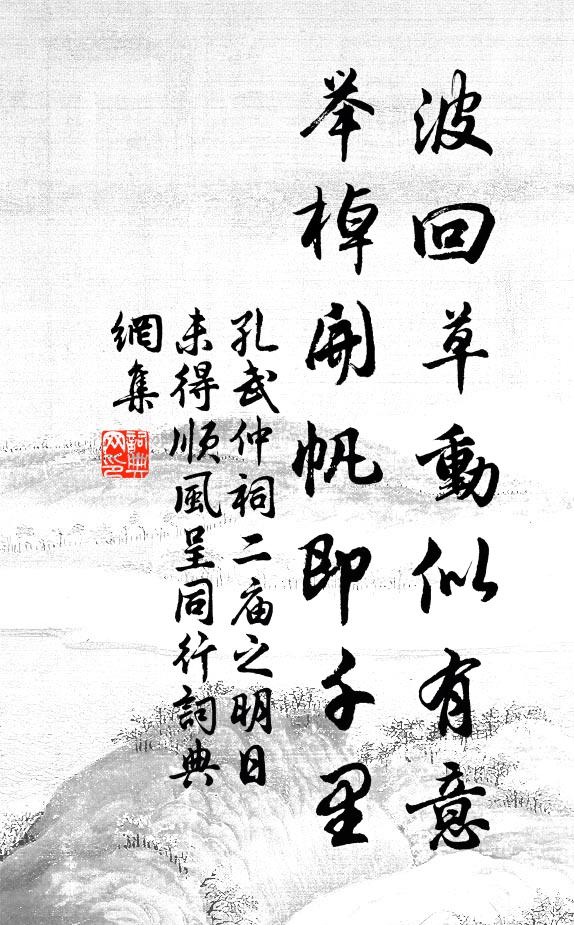 波回草動似有意
举棹開帆即千里
孔武仲祠二庙之明日
未得順風呈同行詞典
網集
詞典網印